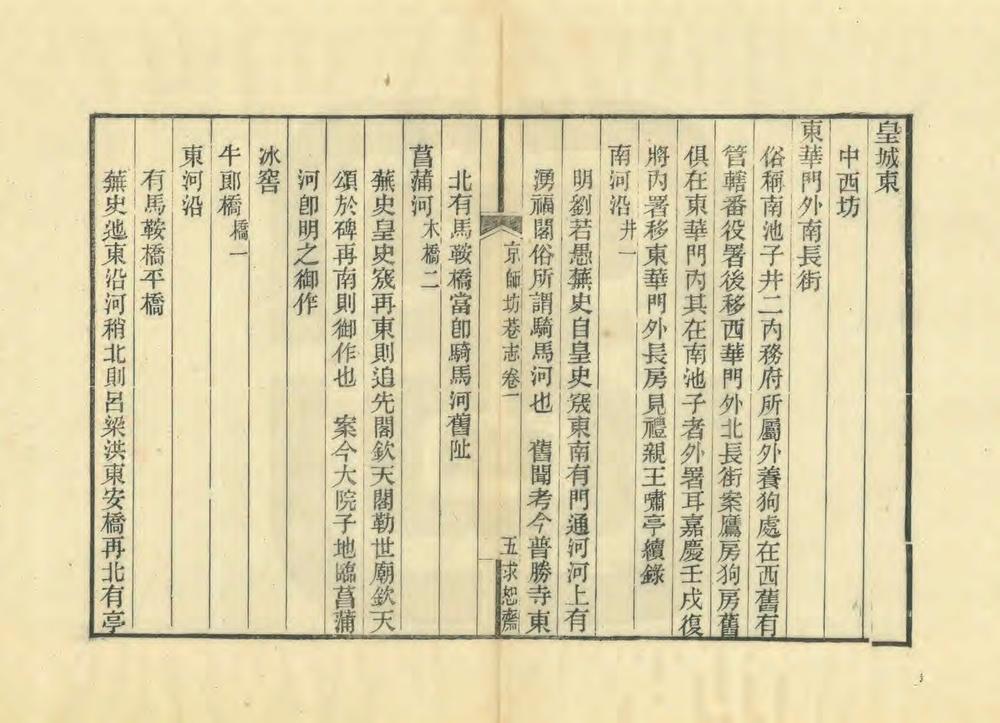 皇城東
中西坊
東華門外南長街
俗稱南池子井二內務府所屬外養狗處在西舊有
管轄番役署後移西華門外北長街案鷹房狗房舊
俱在東華門內其在南池子者外署耳嘉慶壬戌復
將內署移東華門外長房見禮親王嘯亭續錄
南河沿井一
明劉若愚蕪史自皇史宬東南有門通河河上有
湧福閣俗所謂騎馬河也　舊聞考今普勝寺東
京師坊巷志卷一
五求恕齋
北有馬鞍橋當卽騎馬河舊阯
菖蒲河木橋二
蕪史皇史宬再東則追先閣欽天閣勒世廟欽天
頌於碑再南則御作也　案今大院子地臨菖蒲
河卽明之御作
冰窖
牛郎橋橋一
東河沿
有馬鞍橋平橋
蕪史迆東沿河稍北則呂梁洪東安橋再北有亭